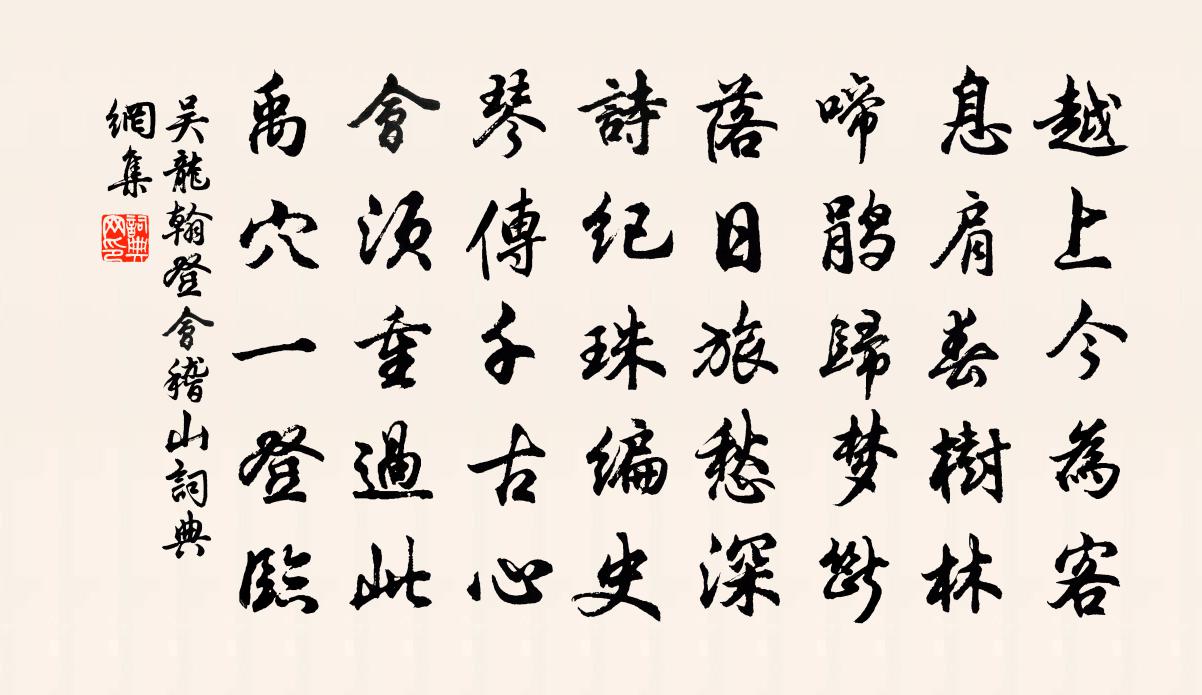 越上今為客
息肩春樹林
啼鹃歸梦断
落日旅愁深
詩紀珠编史
琴傳千古心
會須重過此
禹穴一登臨
吴龍翰登會稽山詞典
網集
詞典網印